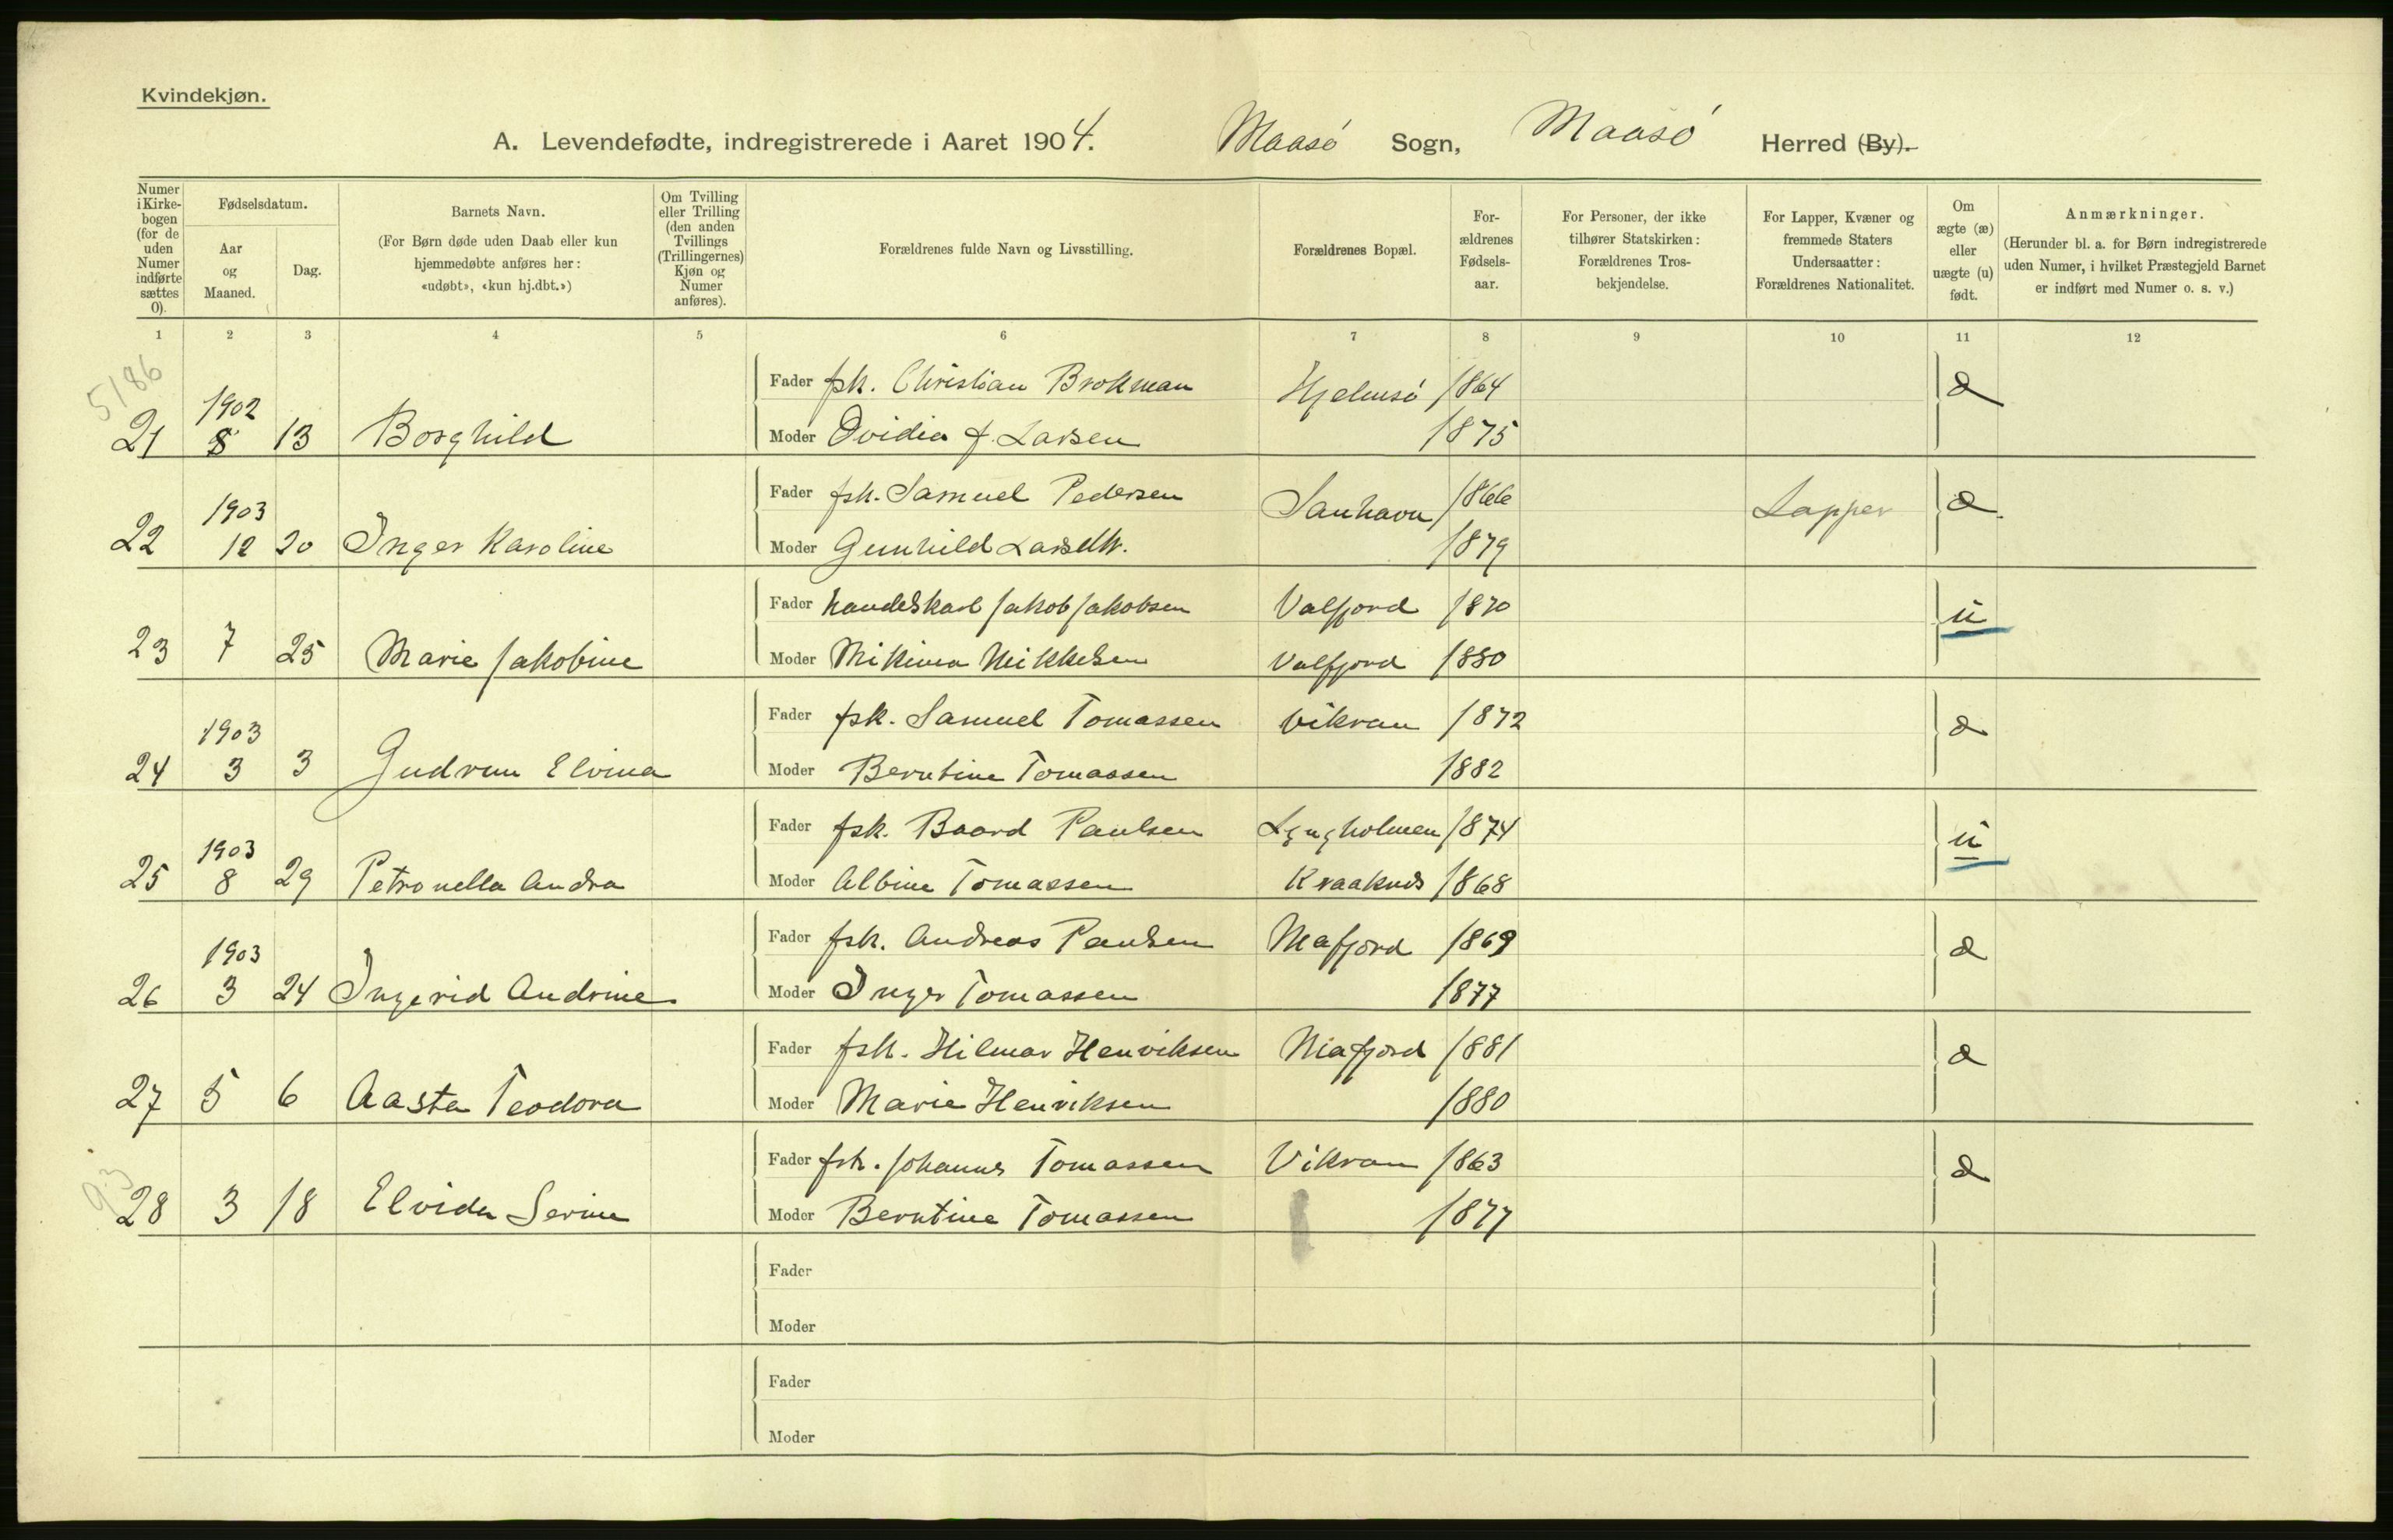 Kvindekjøn.
A. Levendefødte, indregistrerede i Aaret 1904. Maasö Sogn, Maasö Herred (By).
Numer i Kirkebogen (for de uden Numer indførte sættes 0).
Fødselsdatum.
Aar og Maaned.
Dag.
Barnets Navn.
(For Børn døde uden Daab eller kun hjemmedøbte anføres her: «udøbt», «kun hj.dbt.»)
Om Tvilling eller Trilling (den anden Tvillings (Trillingernes) Kjøn og Numer anføres).
Forældrenes fulde Navn og Livsstilling.
Forældrenes Bopæl.
Forældrenes Fødselsaar.
For Personer, der ikke tilhører Statskirken: Forældrenes Trosbekjendelse.
For Lapper, Kvæner og fremmede Staters Undersaatter: Forældrenes Nationalitet.
Om ægte (æ) eller uægte (u) født.
Anmærkninger.
(Herunder bl. a. for Børn indregistrerede uden Numer, i hvilket Præstegjeld Barnet er indført med Numer o. s. v.)
1 2 3 4 5 6 7 8 9 10 11 12
5/86
Fader fsk. Christian Brokman Hjelmsö 1864 æ
21 1902 8 13 Borghild
Moder Ovidia f. Larsen 1875
Fader fsk. Samuel Pedersen Sanhavn 1866 Lapper æ
22 1903 12 20 Inger Karoline
Moder Gunhild Larsdtr. 1879
Fader handelskarl Jakob Jakobsen Valfjord 1870 u
23 7 25 Marie Jakobine
Moder Mikima Mikkelsen Valfjord 1880
Fader fsk. Samuel Tomassen Vikran 1872 æ
24 1903 3 3 Gudrun Elvina
Moder Berntine Tomassen 1882
Fader fsk. Baard Paulsen Lyngholmen 1874 u
25 1903 8 29 Petronella Andra
Moder Albine Tomassen Kraaknes 1868
Fader fsk. Andreas Paulsen Mafjord 1869 æ
26 1903 3 24 Ingerid Andrine
Moder Inger Tomassen 1877
Fader fsk. Hilmar Henriksen Mafjord 1881 æ
27 5 6 Aasta Teodora
Moder Marie Henriksen 1880
Fader fsk. Johannes Tomassen Vikran 1863 æ
93
28 3 18 Elvida Serine
Moder Berntine Tomassen 1877
Fader
Moder
Fader
Moder